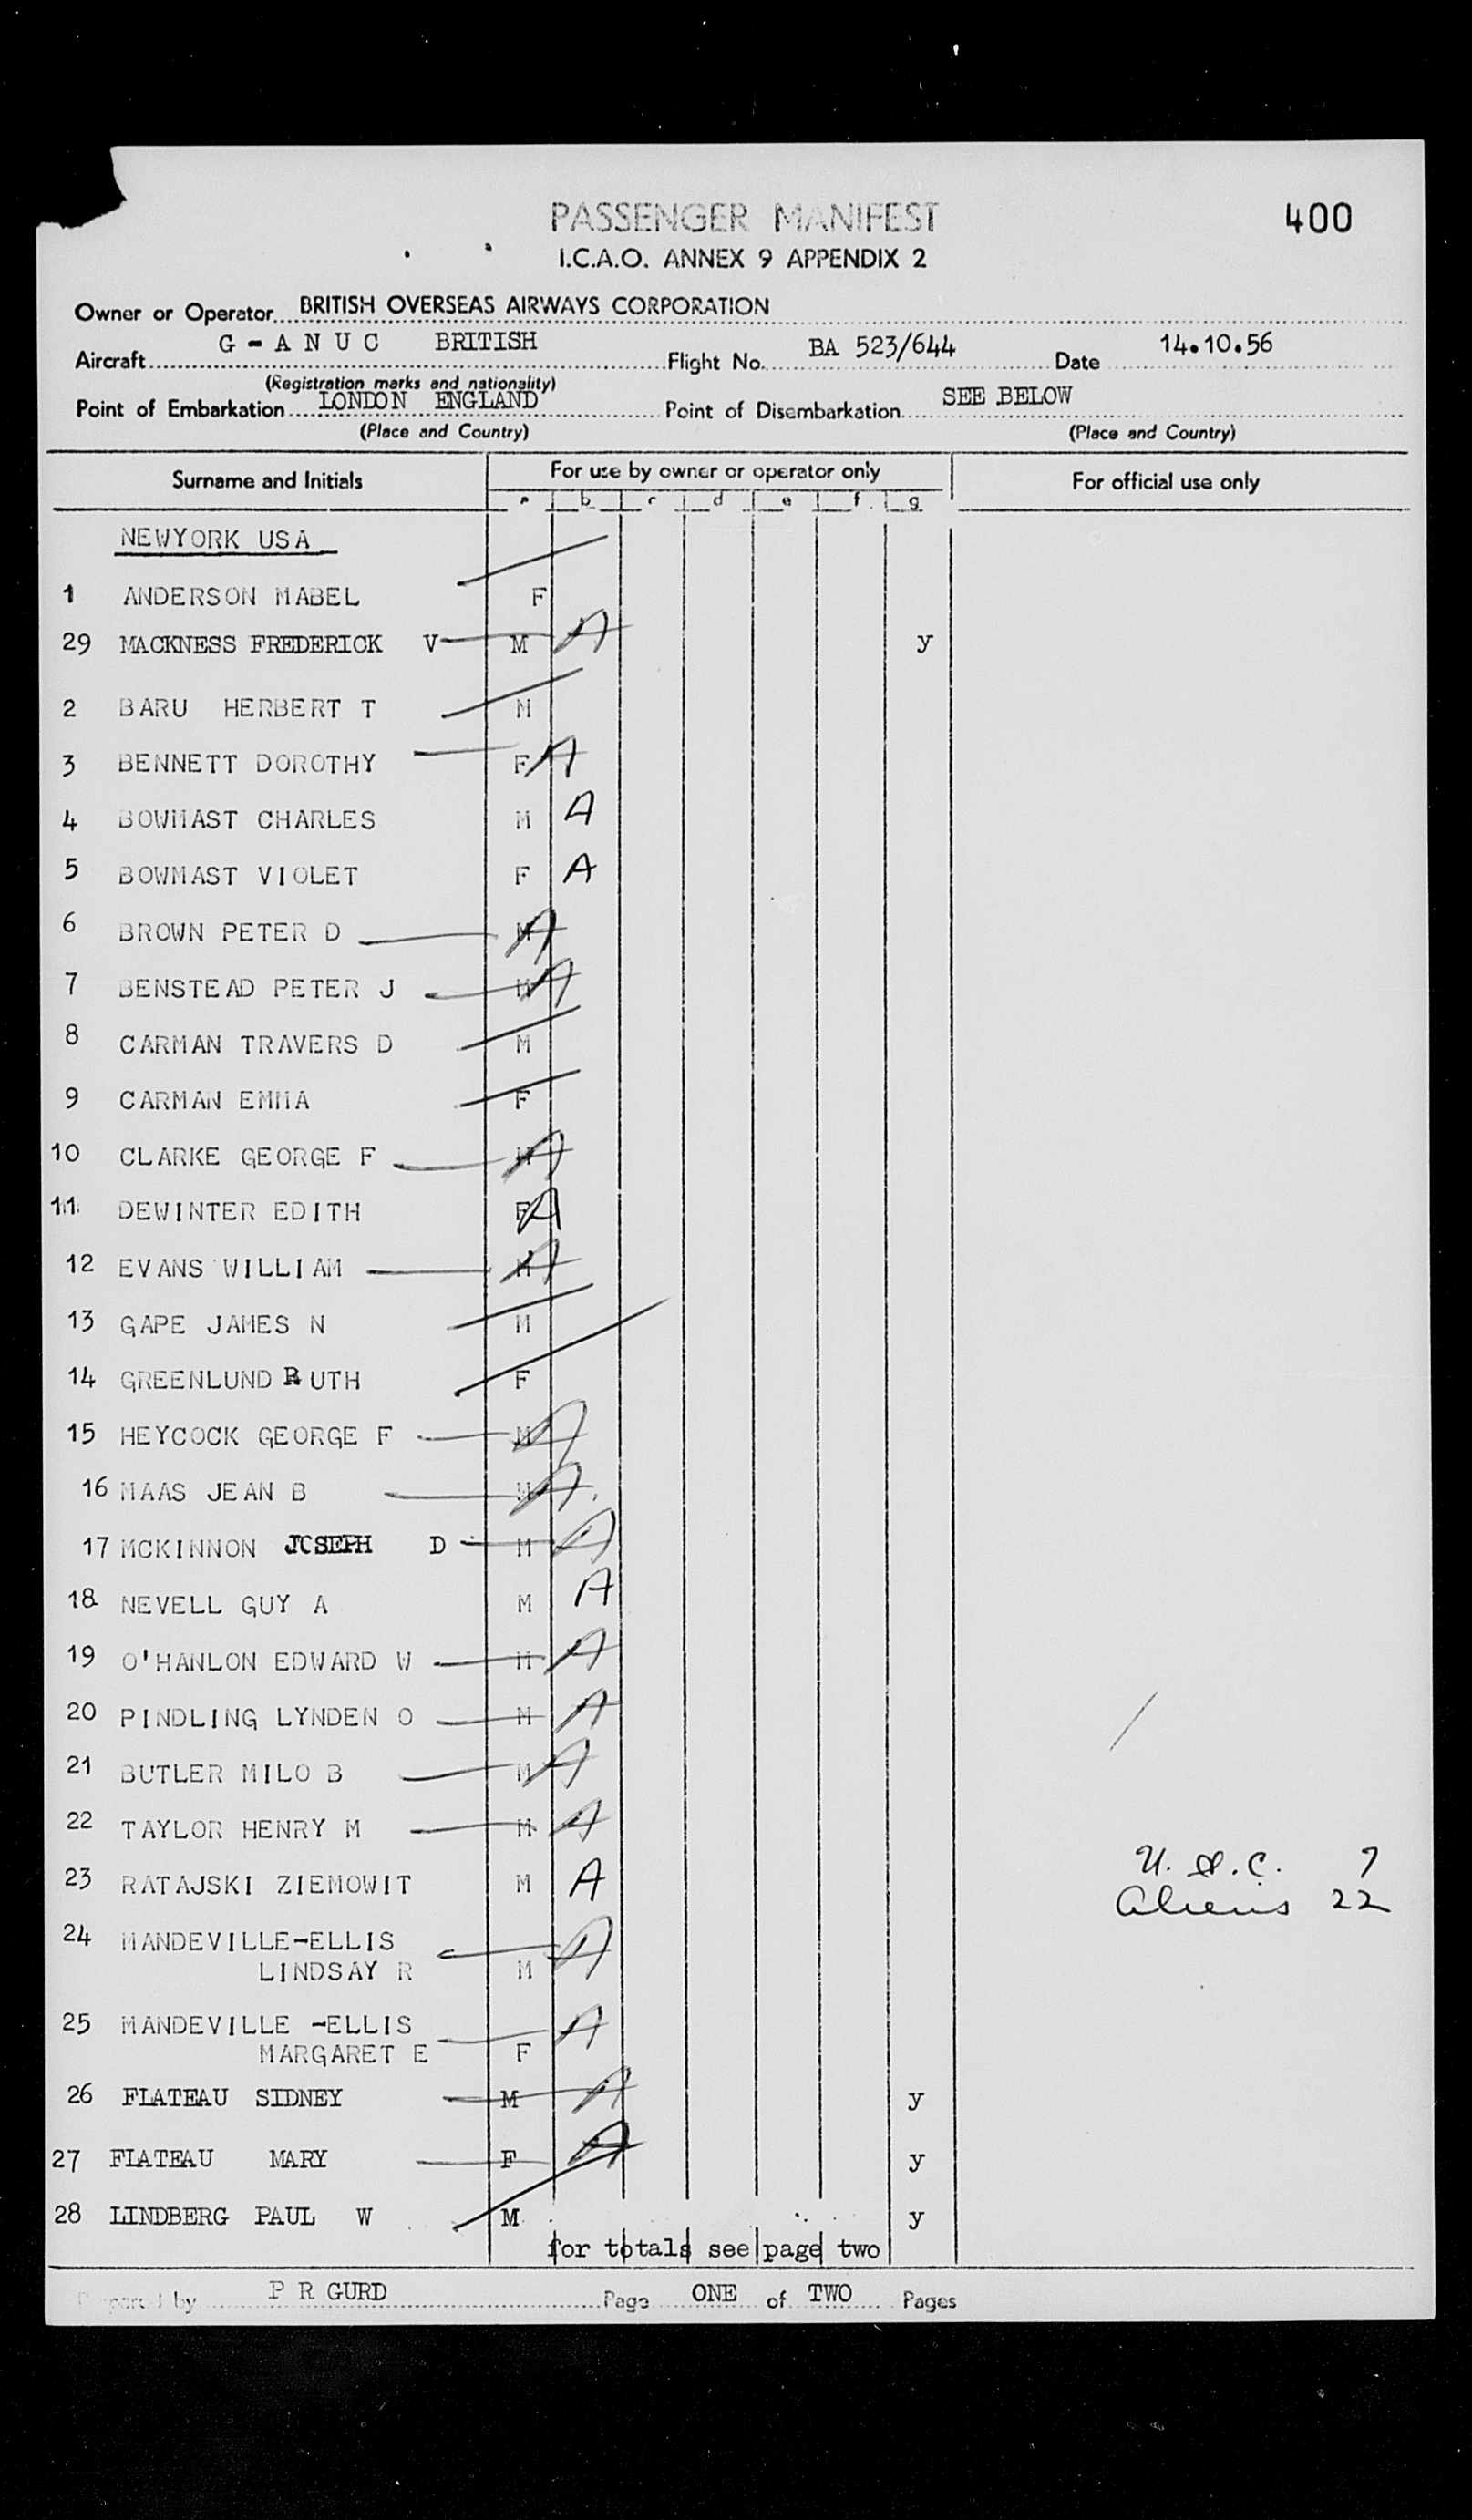 PASSENGER MANIFEST
400
I.C.A.O. ANNEX 9 APPENDIX 2
Owner or Operator BRITISH OVERSEAS AIRWAYS CORPORATION
Aircraft G-ANUC BRITISH Flight No. BA 523/644 Date 14.10.56
(Registration marks and nationality)
Point of Embarkation LONDON ENGLAND Point of Disembarkation SEE BELOW
(Place and Country) (Place and Country)
Surname and Initials For use by owner or operator only For official use only
a b c d e f g
NEWYORK USA
1 ANDERSON MABEL F
29 MACKNESS FREDERICK V M A y
2 BARU HERBERT T M
3 BENNETT DOROTHY F A
4 BOWMAST CHARLES M A
5 BOWMAST VIOLET F A
6 BROWN PETER D M A
7 BENSTEAD PETER J M A
8 CARMAN TRAVERS D M
9 CARMAN EMMA F
10 CLARKE GEORGE F M A
11 DEWINTER EDITH F A
12 EVANS WILLIAM M A
13 GAPE JAMES N M
14 GREENLUND RUTH F
15 HEYCOCK GEORGE F M A
16 MAAS JEAN B M A
17 MCKINNON JOSEPH D M A
18 NEVELL GUY A M A
19 O'HANLON EDWARD W M A
20 PINDLING LYNDEN O M A
21 BUTLER MILO B M A
22 TAYLOR HENRY M M A
23 RATAJSKI ZIEMOWIT M A
U.S.C. 7
Aliens 22
24 MANDEVILLE-ELLIS
LINDSAY R M A
25 MANDEVILLE -ELLIS
MARGARET E F A
26 FLATEAU SIDNEY M A y
27 FLATEAU MARY F A y
28 LINDBERG PAUL W M y
for totals see page two
Prepared by P R GURD Page ONE of TWO Pages